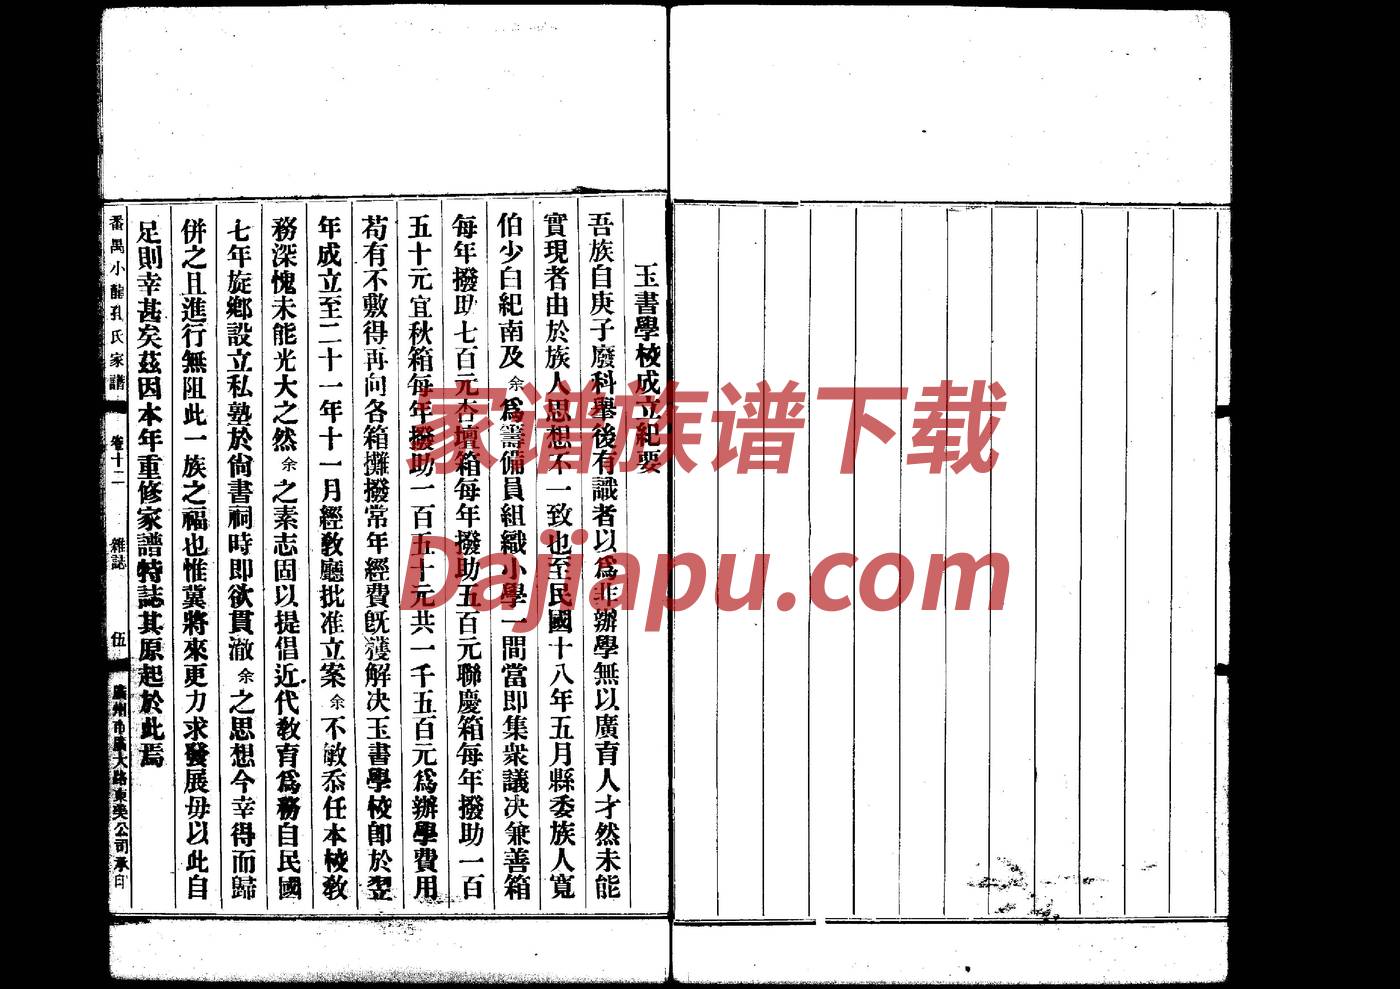 玉書學校成立紀要
吾族自庚子廢科舉後有識者以爲非辦學無以廣育人才然未能
實現者由於族人思想不一致也至民國十八年五月縣委族人寬
伯少白紀南及余爲籌備員組織小學一間當即集衆議決兼善箱
每年撥助七百元杏壇箱每年撥助五百元聯慶箱每年撥助一百
五十元宜秋箱每年撥助一百五十元共一千五百元爲辦學費用
苟有不敷得再向各箱攤撥常年經費旣獲解决玉書學校卽於翌
年成立至二十一年十一月經敎廳批准立案余不敏忝任本校敎
務深愧未能光大之然余之素志固以提倡近代敎育爲務自民國
七年旋鄉設立私塾於尙書祠時即欲貫澈余之思想今幸得而歸
併之且進行無阻此一族之福也惟冀將來更力求發展毋以此自
足則幸甚矣茲因本年重修家譜特誌其原起於此焉
番禺小龍孔氏家譜 卷十二 雜誌 伍 廣州市廣大路東英公司承印
家谱族谱下载
Dajiapu.com